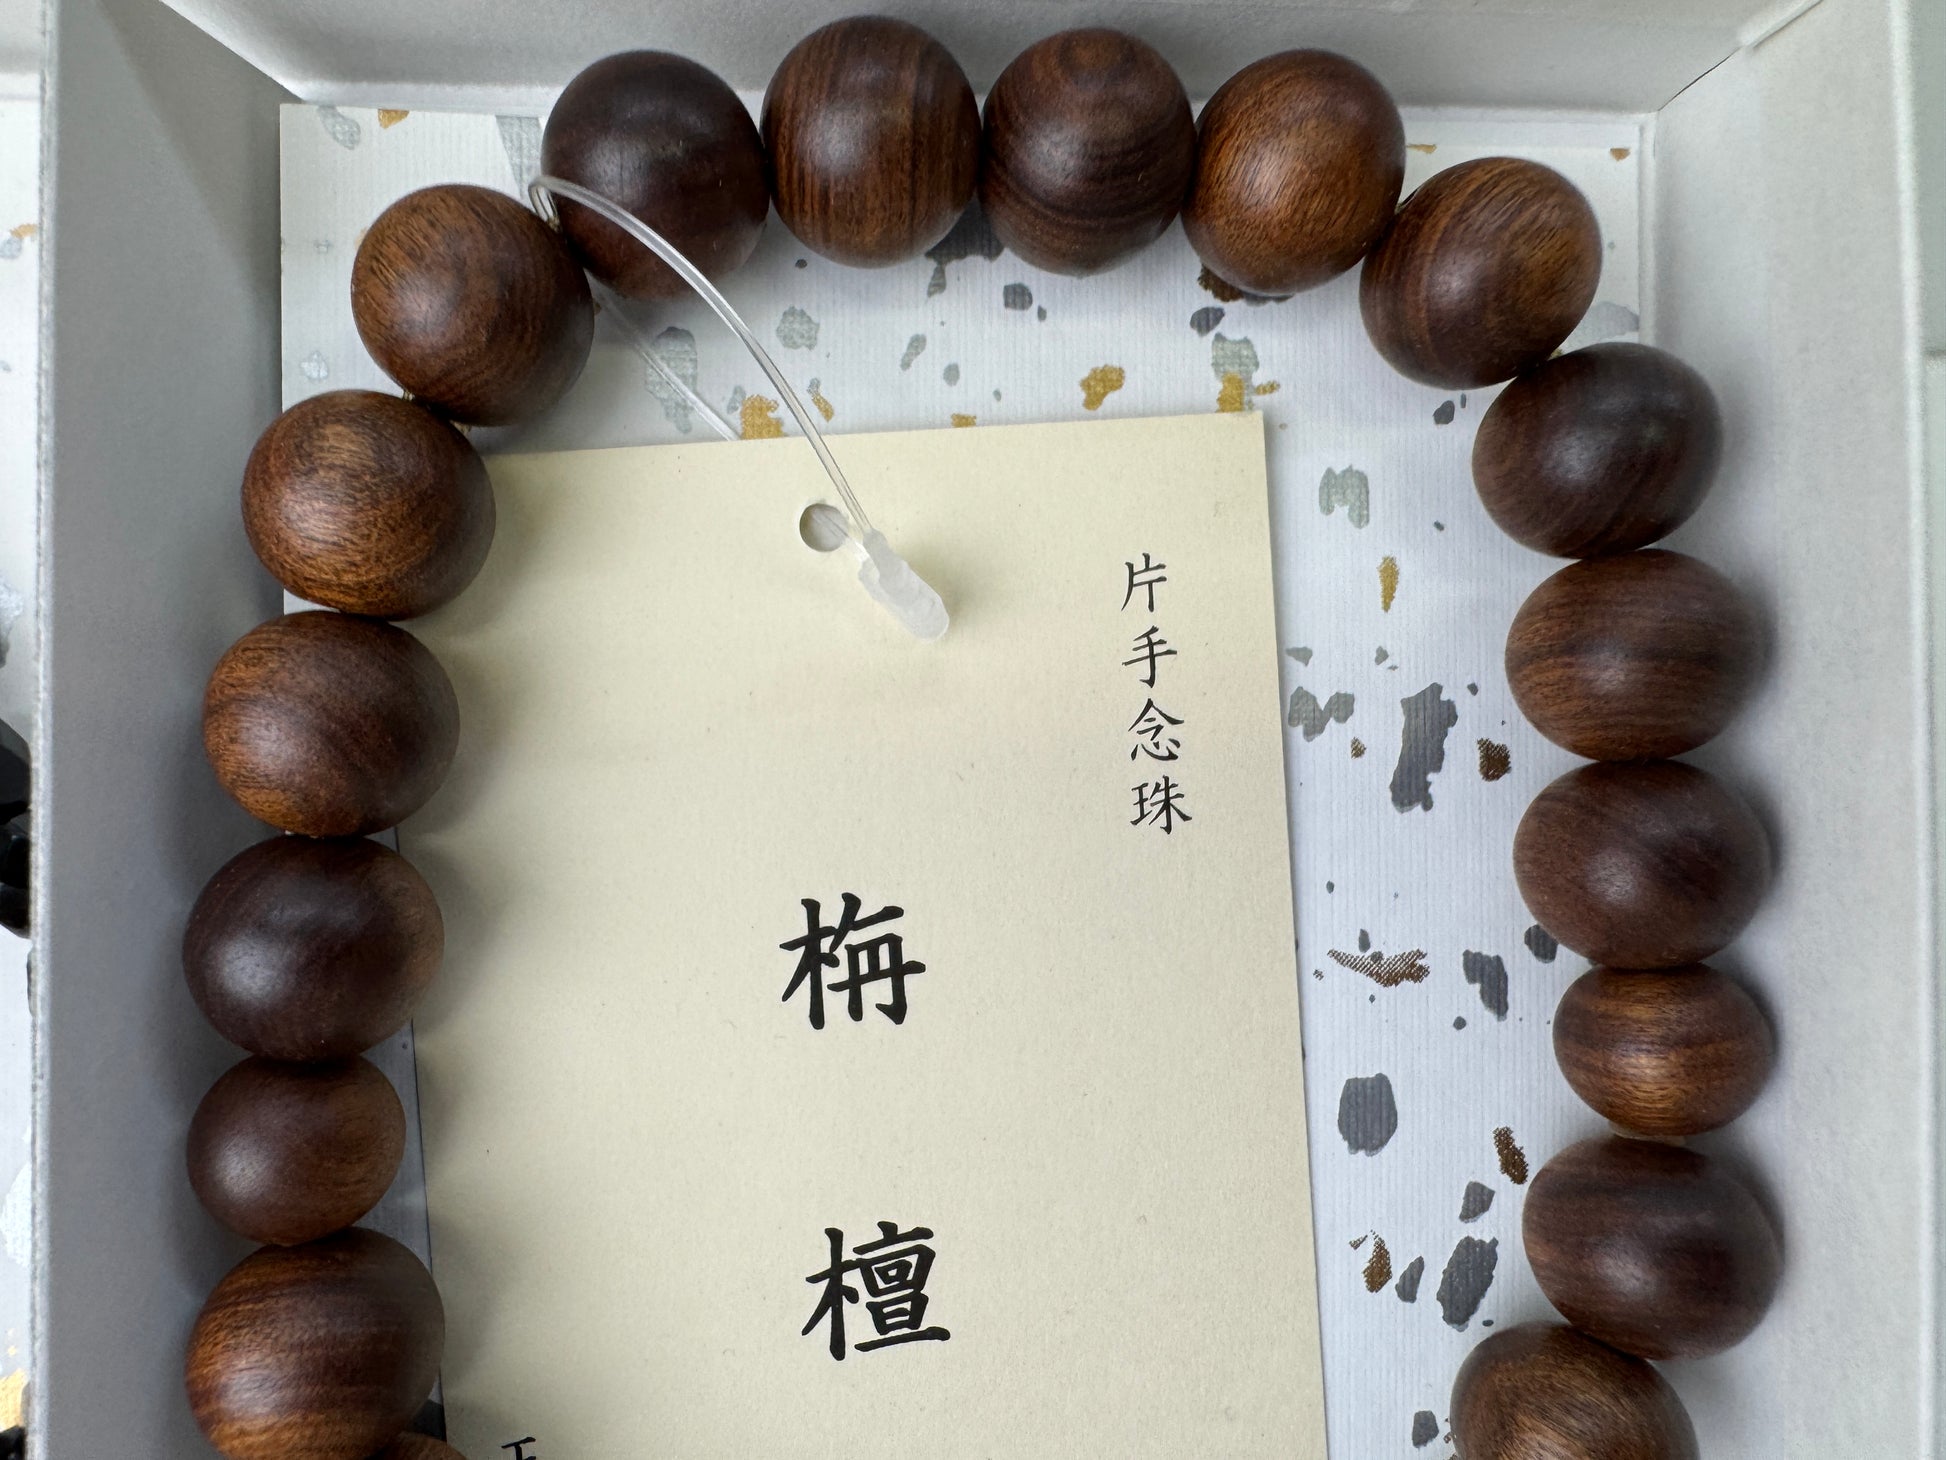 片手念珠
栴檀